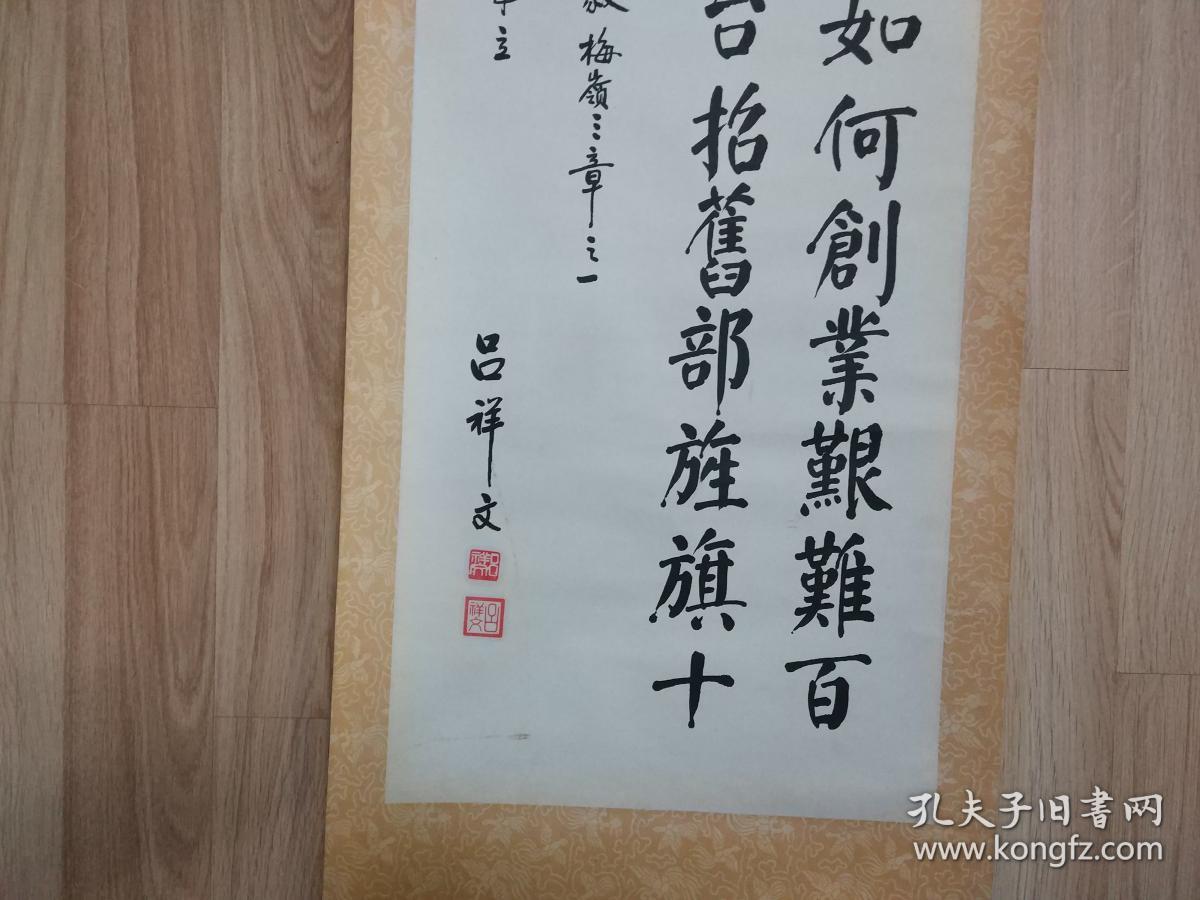 如何創業艱難百
招舊部旌旗十
梅嶺三章之一
立
吕祥文
吕祥文
孔夫子旧書网
www.kongfz.com